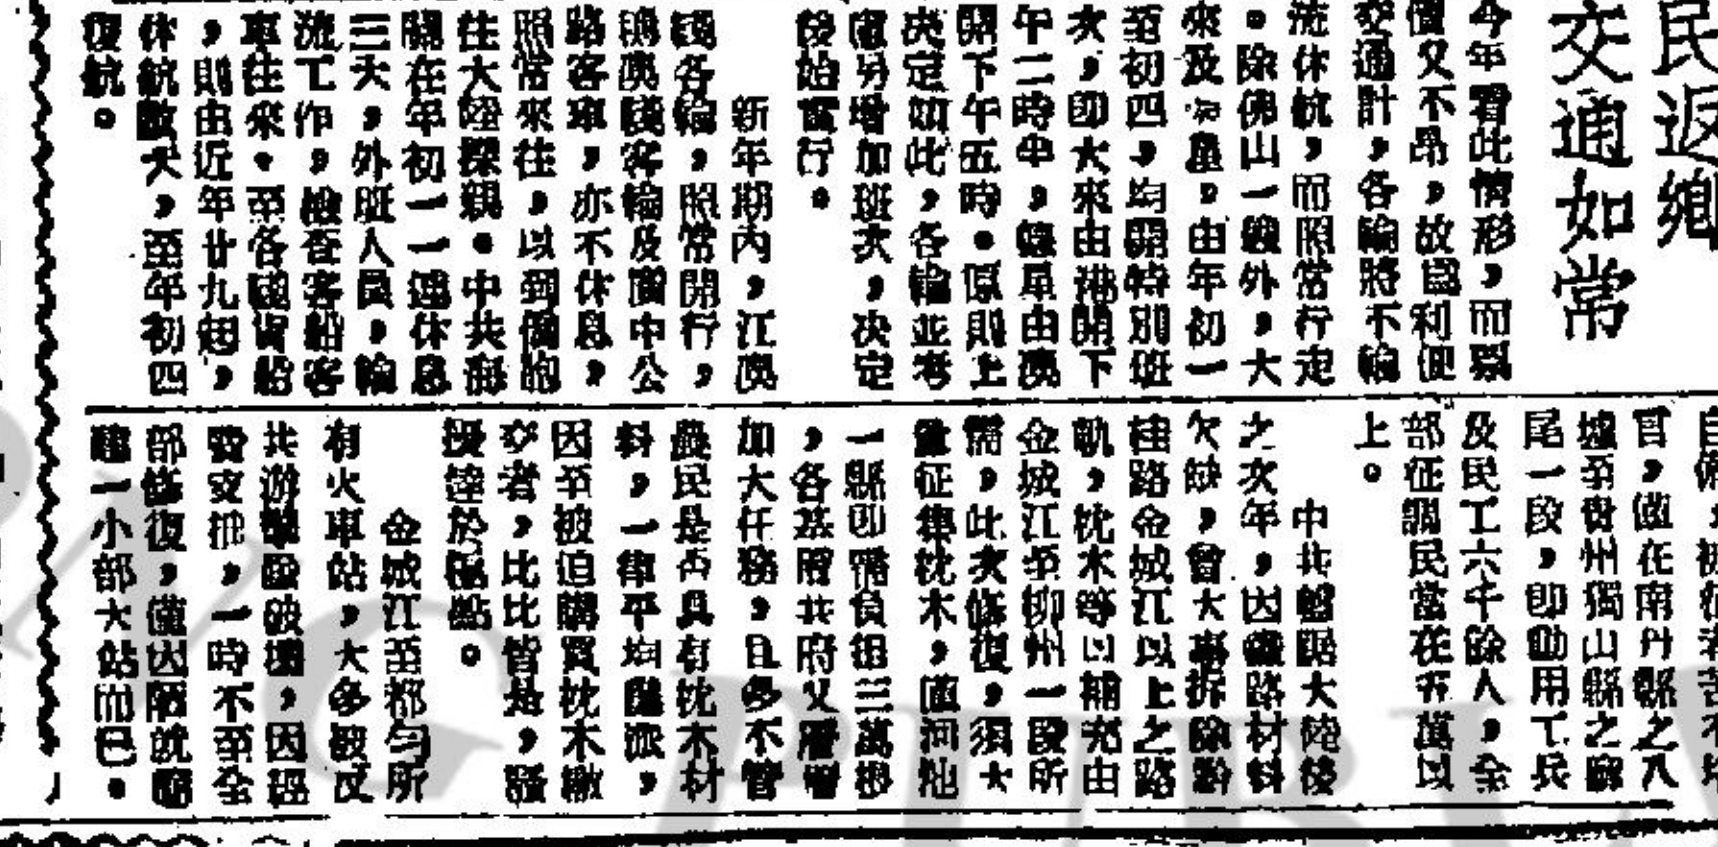 民返鄉
交通如常
今年看此情形，而票
價又不昂，故為利便
交通計，各輪將不輪
流休航，而照常行走
。除佛山一艘外，大
來及　　，由年初一
至初四，均開特別班
次，即大來由港開下
午二時半，德星由澳
開下午五時。原則上
決定如此，各輪並考
慮另增加班次，決定
後始實行。
新年期內，江澳
綫各輪，照常開行，
鴻澳綫客輪及廣中公
路客車，亦不休息，
照常來往，以利僑胞
往大陸探親。中共海
關在年初一一連休息
三天，外班人員，輪
流工作，檢查客船客
車往來。至各國貨船
，則由近年廿九起，
休航數天，至年初四
復航。
自備，被征者苦不堪
官，僅在南丹縣之八
墟至貴州獨山縣之麻
尾一段，即動用工兵
及民工六千餘人，全
部征調民當在五萬以
上。
中共盤踞大陸後
之次年，因鐵路材料
欠缺，曾大事拆除黔
桂路金城江以上之路
軌，枕木等以補充由
金城江至柳州一段所
需，此次修復，須大
量征集枕木，僅河池
一縣即需負担三萬根
，各基層共府又層層
加大任務，且多不管
農民是否具有枕木材
料，一律平均攤派，
因至被迫購買枕木繳
交者，比比皆是，騷
擾達於極點。
金城江至都勻所
有火車站，大多被反
共游擊隊破壞，因經
費支絀，一時不至全
部修復，僅因陋就簡
建一小部大站而已。